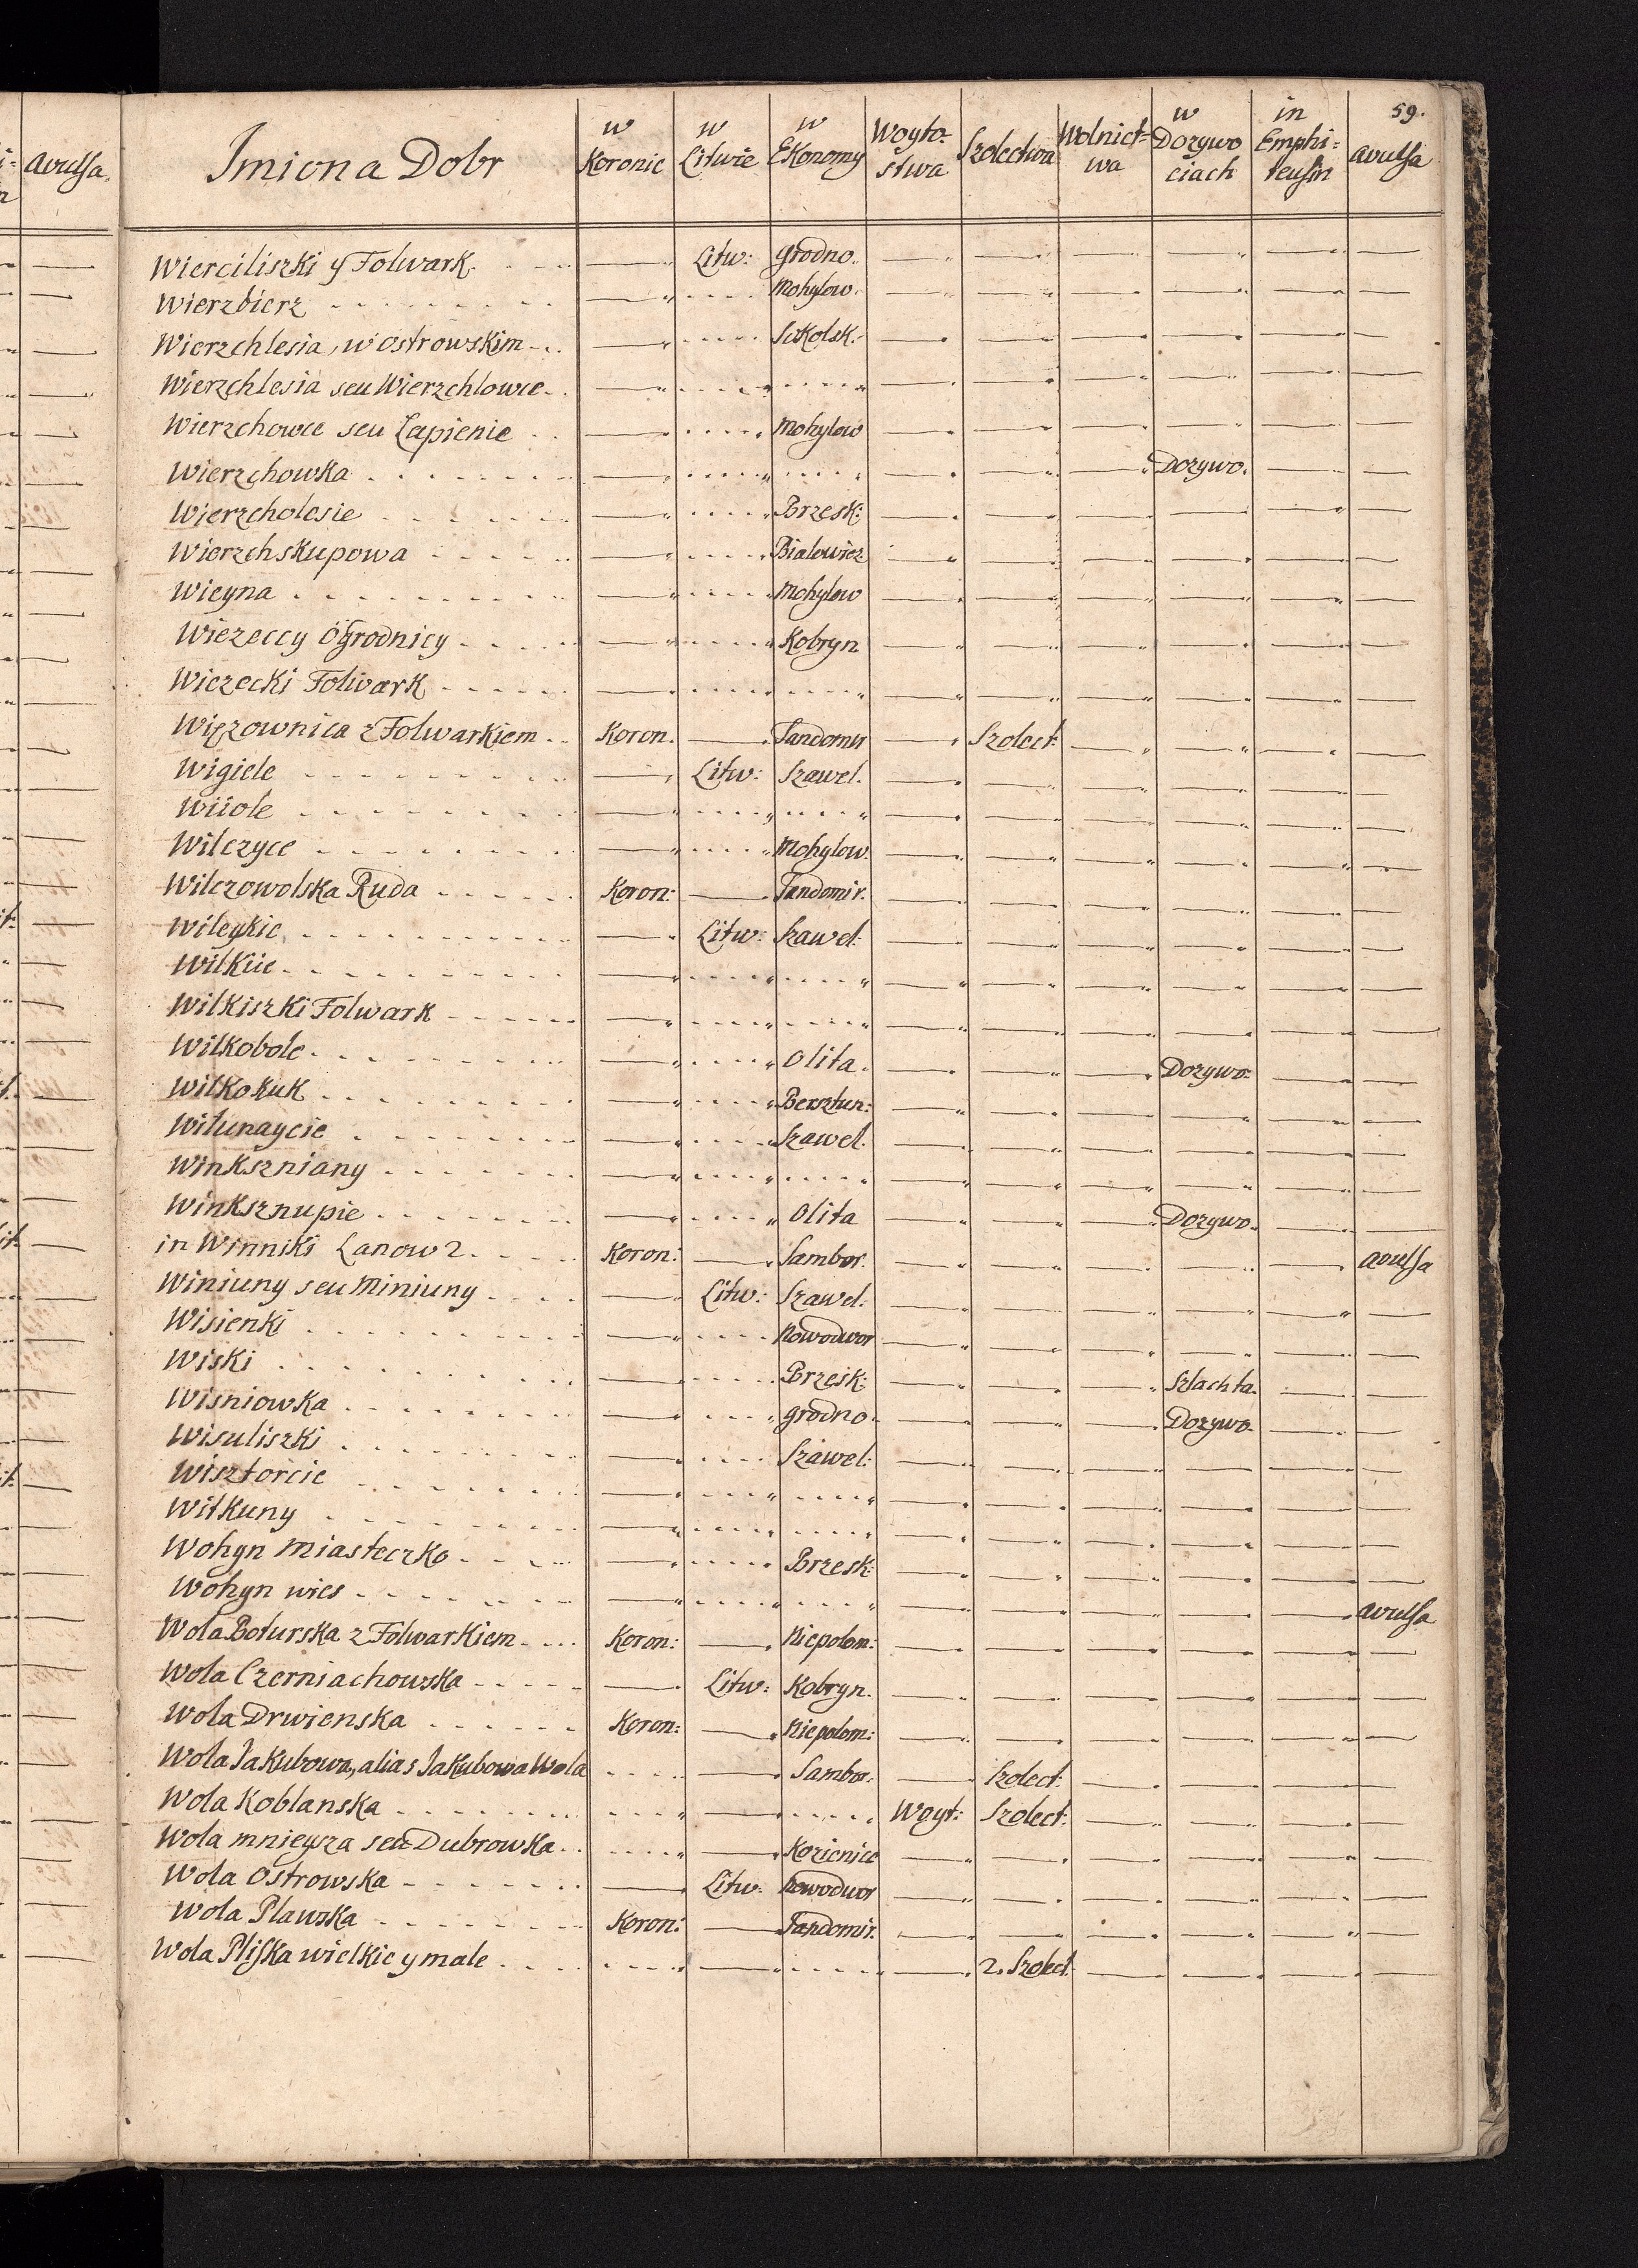 59.
avulsa.
Imiona Dobr | w Koronie | w Litwie | w EKonomy | Woyto-stwa | Szolectwa | Wolnict=wa | w Dozywo ciach | in Emphi=teusin | avulsa
Wierciliszki y Folwark. | — | Litw: | Grodno. | — | — | — | — | — | —
Wierzbierz | — | .... | Mohylow. | — | — | — | — | — | —
Wierzchlesia, w Ostrowskim | — | .... | Sokolsk. | — | — | — | — | — | —
Wierzchlesia seu Wierzchlowce | — | .... | .... | — | — | — | — | — | —
Wierzchowce seu Łapienie | — | .... | Mohylow | — | — | — | — | — | —
Wierzchowka | — | .... | .... | — | — | — | Dozywo. | — | —
Wierzcholesie | — | .... | Brzesk: | — | — | — | — | — | —
Wierzchskupowa | — | .... | Bialowiez | — | — | — | — | — | —
Wieyna | — | .... | Mohylow | — | — | — | — | — | —
Wiezeccy Ogrodnicy | — | .... | Kobryn | — | — | — | — | — | —
Wiezecki Folwark | — | .... | .... | — | — | — | — | — | —
Więzownica z Folwarkiem | Koron. | — | Sandomir | — | Szolect: | — | — | — | —
Wigiele | — | Litw: | Szawel. | — | — | — | — | — | —
Wiiole | — | .... | .... | — | — | — | — | — | —
Wilczyce | — | .... | Mohylow. | — | — | — | — | — | —
Wilczowolska Ruda | Koron: | — | Sandomir. | — | — | — | — | — | —
Wileykie | — | Litw: | Szawel: | — | — | — | — | — | —
Wilkiie | — | .... | .... | — | — | — | — | — | —
Wilkiszki Folwark | — | .... | .... | — | — | — | — | — | —
Wilkobole | — | .... | Olita. | — | — | — | Dozywo: | — | —
Wilkokuk | — | .... | Bersztun: | — | — | — | — | — | —
Wilunaycie | — | .... | Szawel. | — | — | — | — | — | —
Winkszniany | — | .... | .... | — | — | — | — | — | —
Winksznupie | — | .... | Olita | — | — | — | Dozywo. | — | —
in Winniki Łanow 2. | Koron: | — | Sambor. | — | — | — | — | — | avulsa
Winiuny seu Miniuny | — | Litw: | Szawel: | — | — | — | — | — | —
Wisienki | — | .... | Nowodwor | — | — | — | — | — | —
Wiski | — | .... | Brzesk: | — | — | — | Szlachta. | — | —
Wisniowka | — | .... | Grodno. | — | — | — | Dozywo. | — | —
Wisuliszki | — | .... | Szawel: | — | — | — | — | — | —
Wisztorcie | — | .... | .... | — | — | — | — | — | —
Witkuny | — | .... | .... | — | — | — | — | — | —
Wohyn Miasteczko | — | .... | Brzesk: | — | — | — | — | — | —
Wohyn wies | — | .... | .... | — | — | — | — | — | avulsa
Wola Boturska z Folwarkiem | Koron: | — | Niepolom: | — | — | — | — | — | —
Wola Czerniachowska | — | Litw: | Kobryn. | — | — | — | — | — | —
Wola Drwienska | Koron: | — | Niepolom: | — | — | — | — | — | —
Wola Jakubowa, alias Jakubowa Wola | .... | — | Sambor. | — | Szolect: | — | — | — | —
Wola Koblanska | .... | — | .... | Woyt: | Szolect: | — | — | — | —
Wola mnieysza seu Dubrowka | .... | — | Kozienice | — | — | — | — | — | —
Wola Ostrowska | — | Litw: | Nowodwor | — | — | — | — | — | —
Wola Plawska | Koron: | — | Sandomir. | — | — | — | — | — | —
Wola Pliska wielkie y male | .... | — | .... | — | 2. Szolect: | — | — | — | —